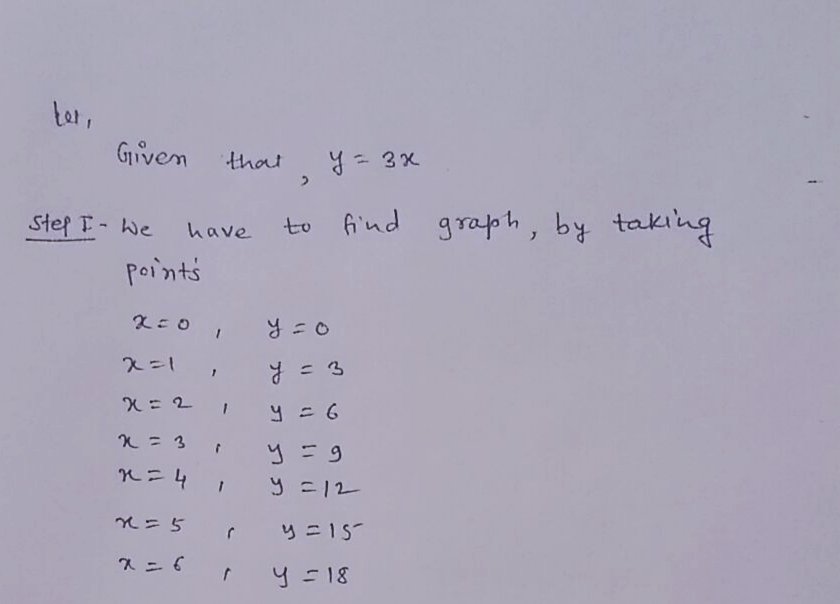 Let,
Given that, y = 3x
Step I - We have to find graph, by taking
points
x = 0, y = 0
x = 1, y = 3
x = 2, y = 6
x = 3, y = 9
x = 4, y = 12
x = 5, y = 15
x = 6, y = 18